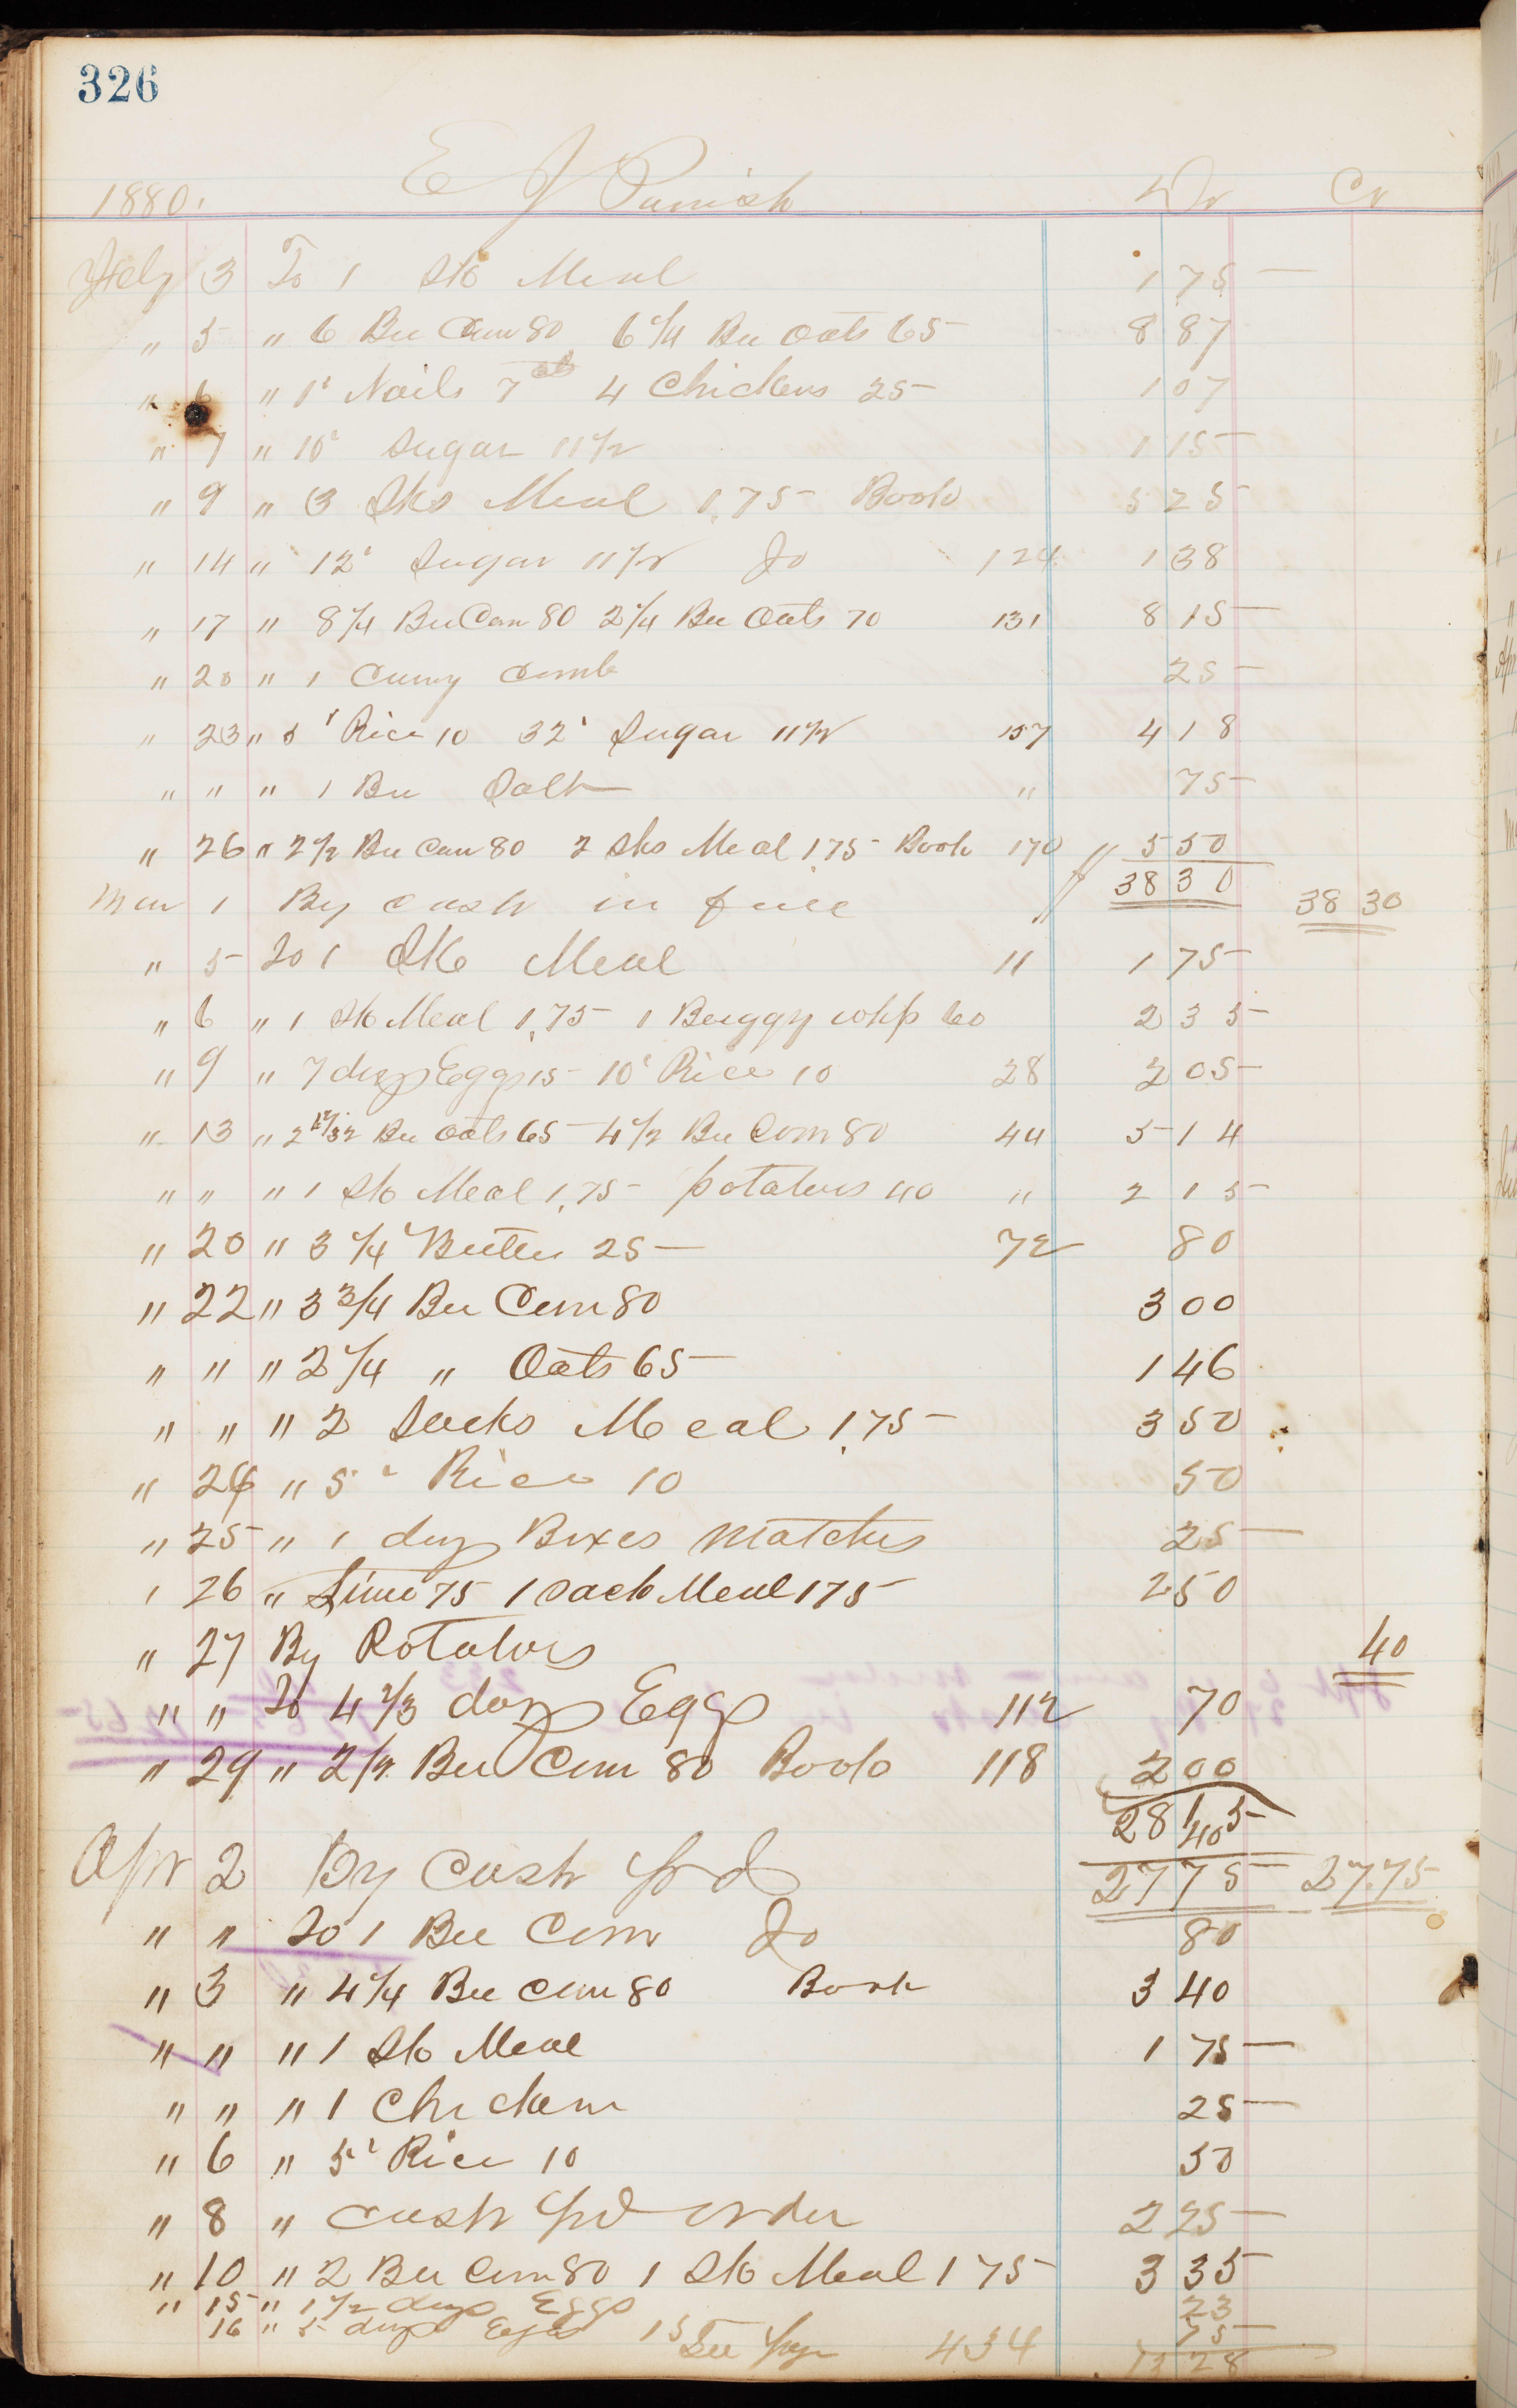 326
1880. E J Parrish Dr Cr
Feby 3 To 1 Sk Meal 1 75
" 5 " 6 Bu Corn 80 6 1/4 Bu Oats 65 8 87
" 6 " 1' Nails 7 cts 4 Chickens 25 1 07
" 7 " 10' Sugar 11 1/2 1 15
" 9 " 3 Sks Meal 1.75 Book 5 25
" 14 " 12' Sugar 11 1/2 Do 124 1 38
" 17 " 8 1/4 Bu Corn 80 2 1/4 Bu Oats 70 131 8 15
" 20 " 1 Curry Comb 25
" 23 " 5' Rice 10 32' Sugar 11 1/2 157 4 18
" " " 1 Bu Salt " 75
" 26 " 2 1/2 Bu Corn 80 2 Sks Meal 1.75 Book 170 5 50
38 30
Mar 1 By Cash in full 38 30
" 5 To 1 Sk Meal 11 1 75
" 6 " 1 Sk Meal 1.75 1 Buggy whp 60 2 35
" 9 " 7 doz Eggs 15 10' Rice 10 28 2 05
" 13 " 2 17/32 Bu Oats 65 4 1/2 Bu Corn 80 44 5 14
" " " 1 Sk Meal 1.75 potatoes 40 " 2 15
" 20 " 3 1/4' Butter 25 72 80
" 22 " 3 3/4 Bu Corn 80 3 00
" " " 2 1/4 " Oats 65 1 46
" " " 2 Sacks Meal 1.75 3 50
" 24 " 5' Rice 10 50
" 25 " 1 doz Boxes Matches 25
" 26 " Lime 75 1 Sack Meal 175 2 50
" 27 By Potatoes 40
" " To 4 2/3 doz Eggs 112 70
" 29 " 2 1/2 Bu Corn 80 Book 118 2 00
28 15
40
Apr 2 By Cash pd 27 75 27.75
" " To 1 Bu Corn Do 80
" 3 " 4 1/4 Bu Corn 80 Book 3 40
" " " 1 Sk Meal 1 75
" " " 1 Chicken 25
" 6 " 5' Rice 10 50
" 8 " Cash pd order 2 25
" 10 " 2 Bu Corn 80 1 Sk Meal 1 75 3 35
" 15 " 1 1/2 doz Eggs 23
16 " 5 doz Eggs 15 75
See page 434 13 28